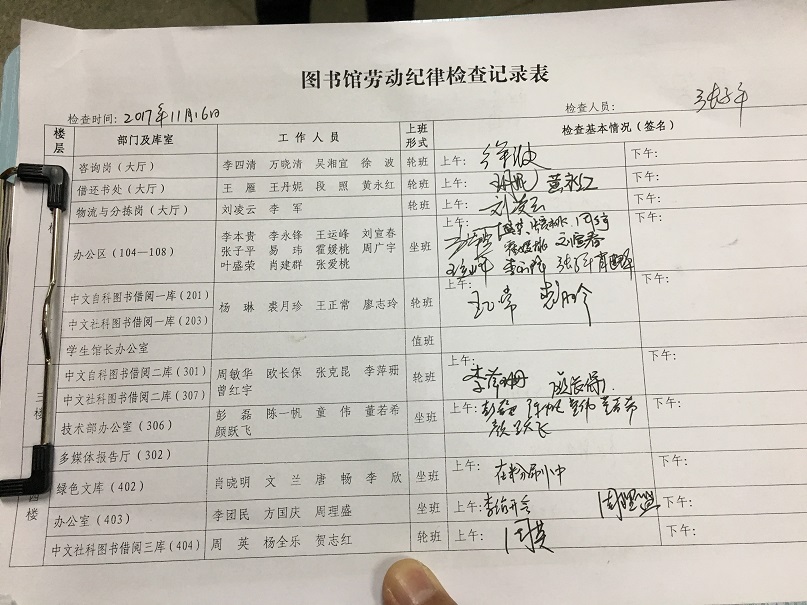 图书馆劳动纪律检查记录表
检查时间: 2017年11月16日 检查人员: 张子平
楼层 部门及库室 工作人员 上班形式 检查基本情况（签名）
咨询岗（大厅） 李四清 万晓清 吴湘宜 徐波 轮班 上午: 徐波 下午:
借还书处（大厅） 王雁 王丹妮 段照 黄永红 轮班 上午: 黄永红 下午:
物流与分拣岗（大厅） 刘凌云 李军 轮班 上午: 刘凌云 下午:
办公区（104—108） 李本贵 李永锋 王运峰 刘宣春 坐班 上午: 下午:
张子平 易玮 霍媛桃 周广宇 刘宣春
叶盛荣 肖建群 张爱桃
中文自科图书借阅一库（201） 杨琳 裘月珍 王正常 廖志玲 轮班 上午: 王正常 裘月珍 下午:
中文社科图书借阅一库（203）
学生馆长办公室 值班 下午:
三楼 中文自科图书借阅二库（301） 周敏华 欧长保 张克昆 李萍珊 轮班 上午: 李萍珊 欧长保 下午:
中文社科图书借阅二库（307） 曾红宇
技术部办公室（306） 彭磊 陈一帆 童伟 董若希 坐班 上午: 彭磊 陈一帆 童伟 董若希 下午:
颜跃飞 颜跃飞
多媒体报告厅（302）
四楼 绿色文库（402） 肖晓明 文兰 唐畅 李欣 坐班 上午: 在粉刷中 下午:
办公室（403） 李团民 方国庆 周理盛 坐班 上午: 周理盛 下午:
中文社科图书借阅三库（404） 周英 杨全乐 贺志红 轮班 上午: 周英 下午: